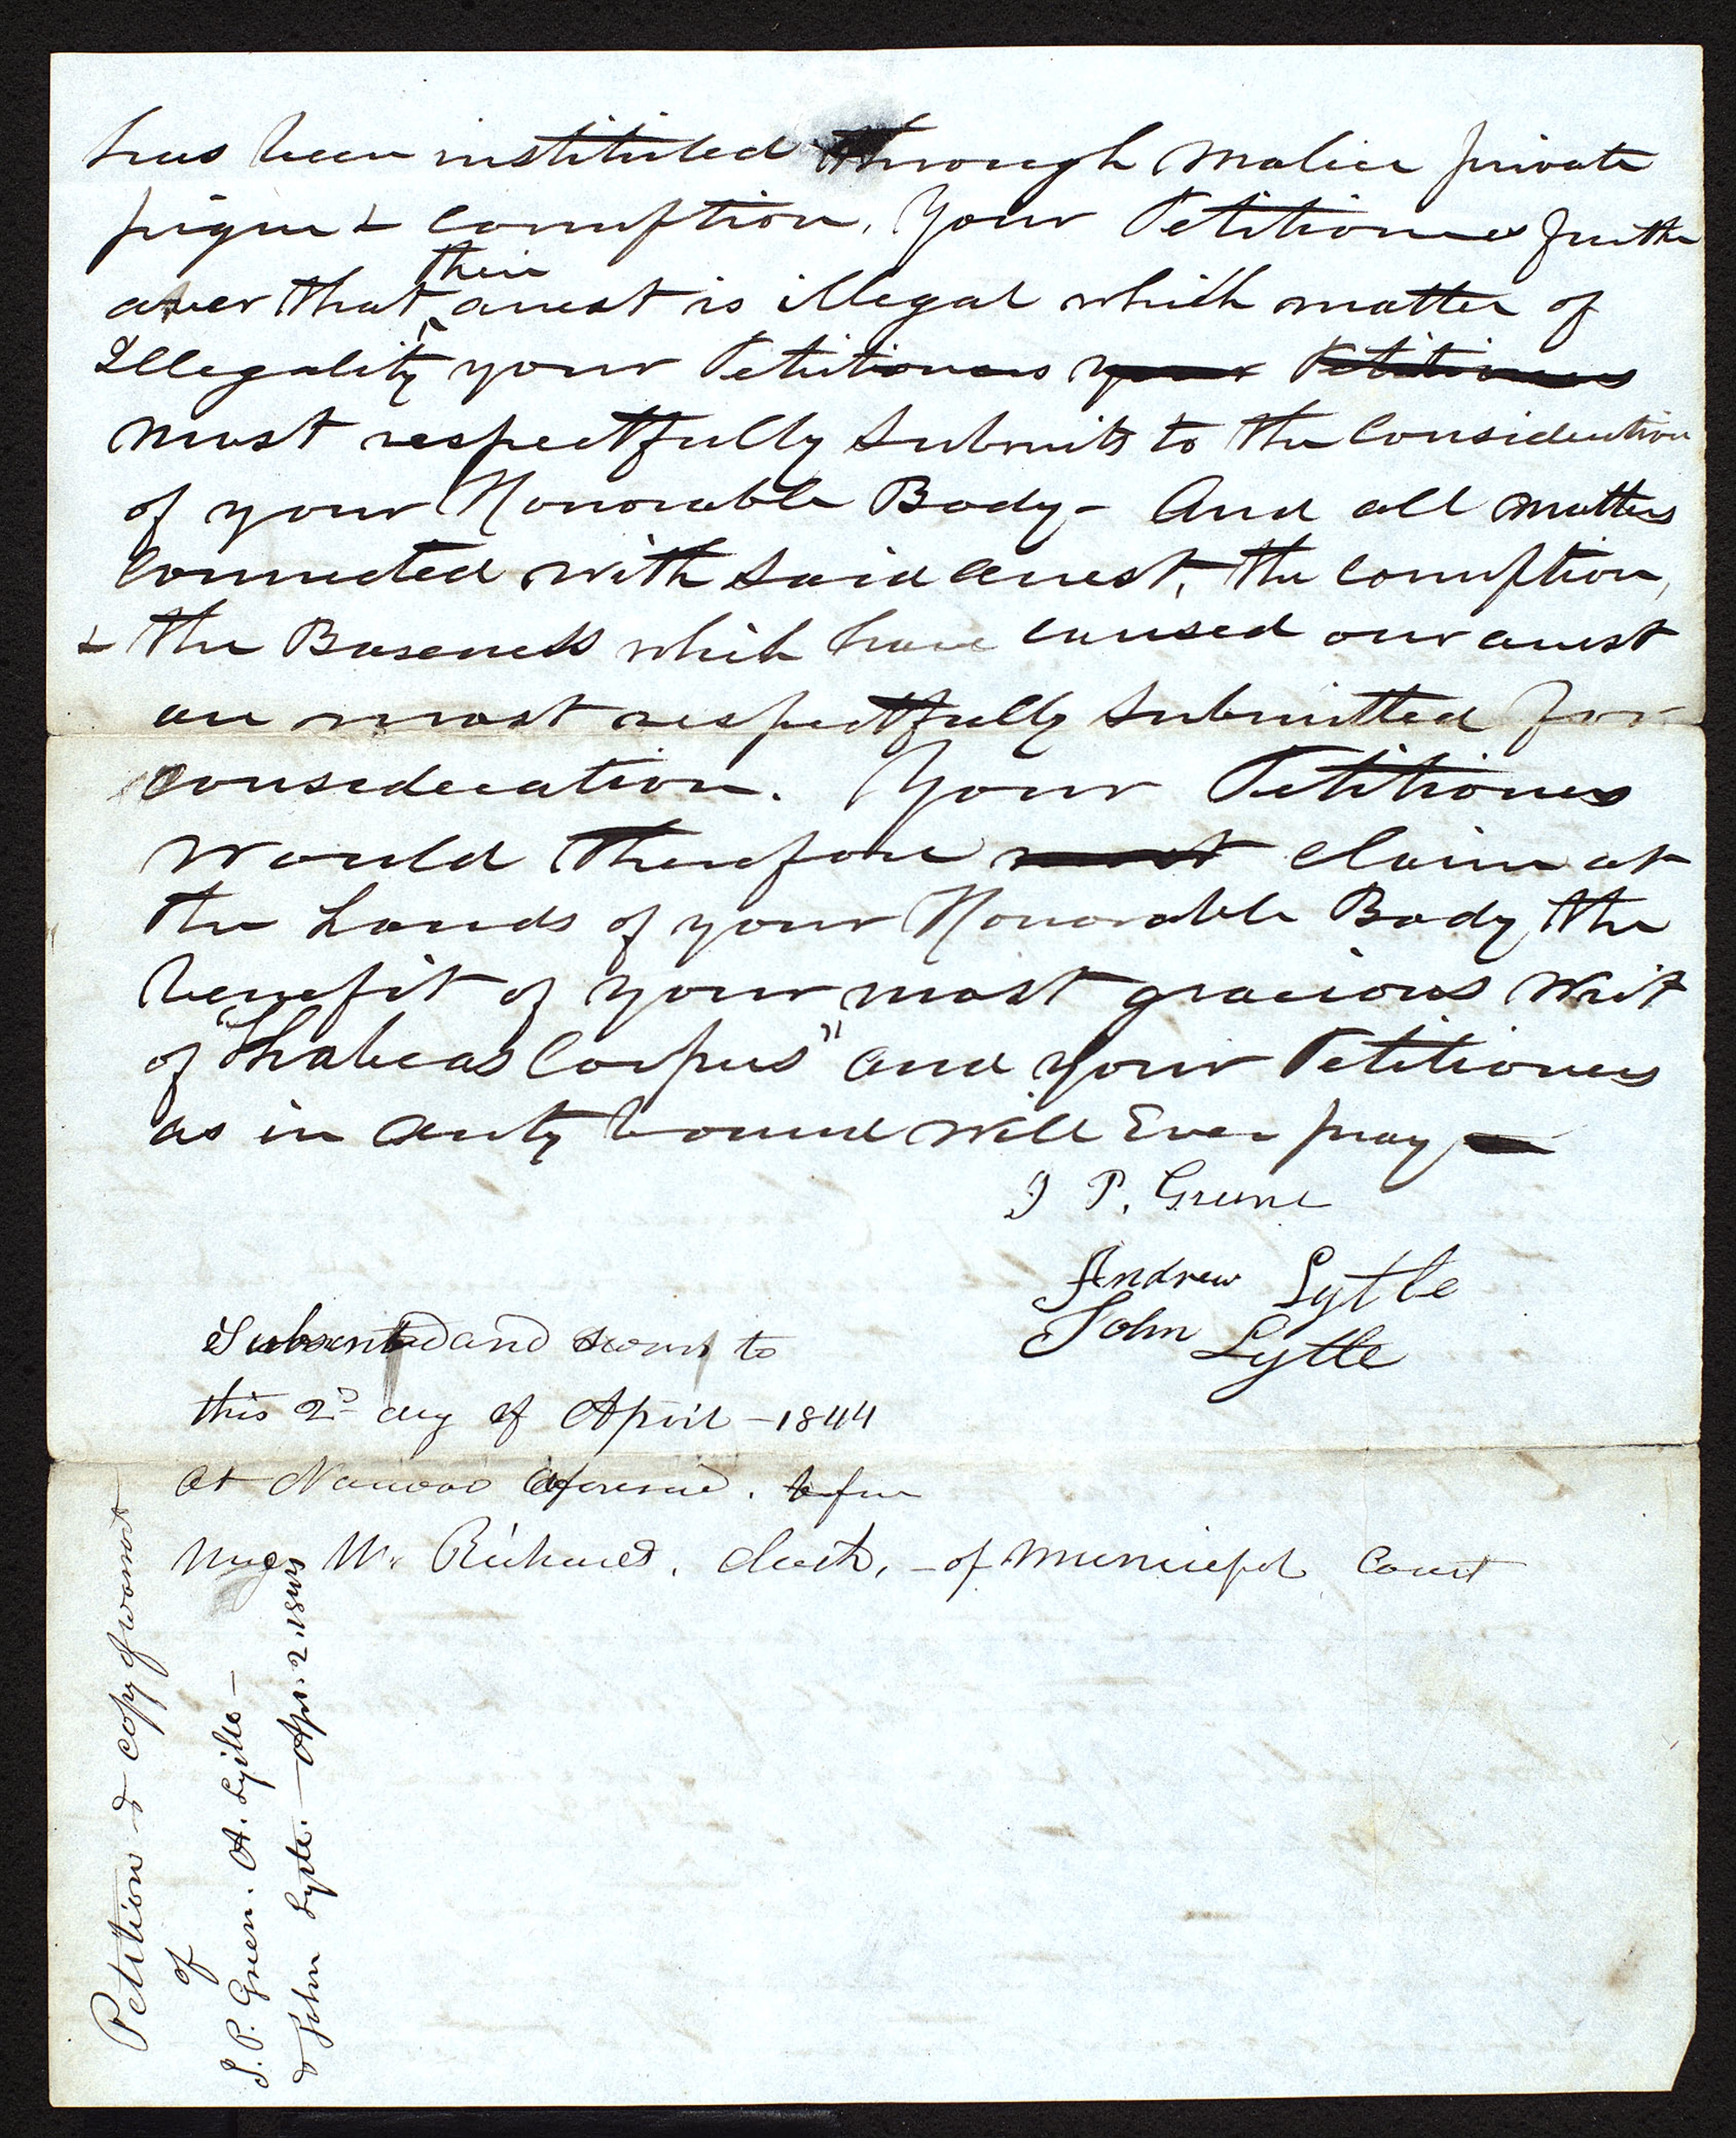 has been instituted through malice private
pique & corruption. Your Petitioners further
aver that their arrest is illegal which matter of
Illegality your Petitioners your Petitioners
most respectfully Submits to the Consideration
of your Honorable Body - And all matters
Connected with Said arrest, the Corruption,
& the Baseness which have caused our arrest
are most respectfully Submitted for
consideration. Your Petitioners
Would therefore most claim at
the hands of your Honorable Body the
benefit of your most gracious Writ
of "habeas Corpus" and your Petitioners
as in duty bound will Ever pray
J P. Greene
Andrew Lytle
John Lytle
Subscribed and sworn to
this 2d day of April - 1844
at Nauvoo aforesaid. before
me W. Richards. clerk, - of Municipal Court
Petition & copy of warrant
of
J. P. Green. A. Lytle -
& John Lytle. - Apr. 2 1844